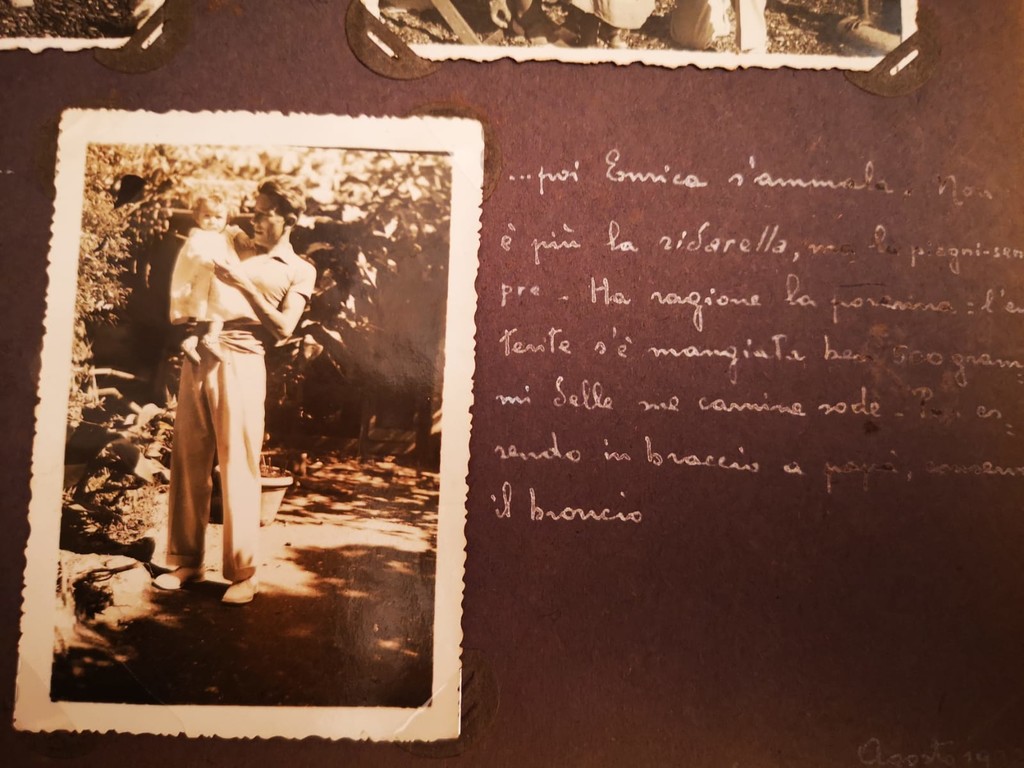 ...poi Enrica s'ammala. Non
è più la ridarella, ma la piagni-sem
pre. Ha ragione la poverina: l'en
terite s'è mangiata ben 500 gram
mi delle sue carnine sode. Pur es
sendo in braccio a papà, conserv
il broncio
Agosto 19